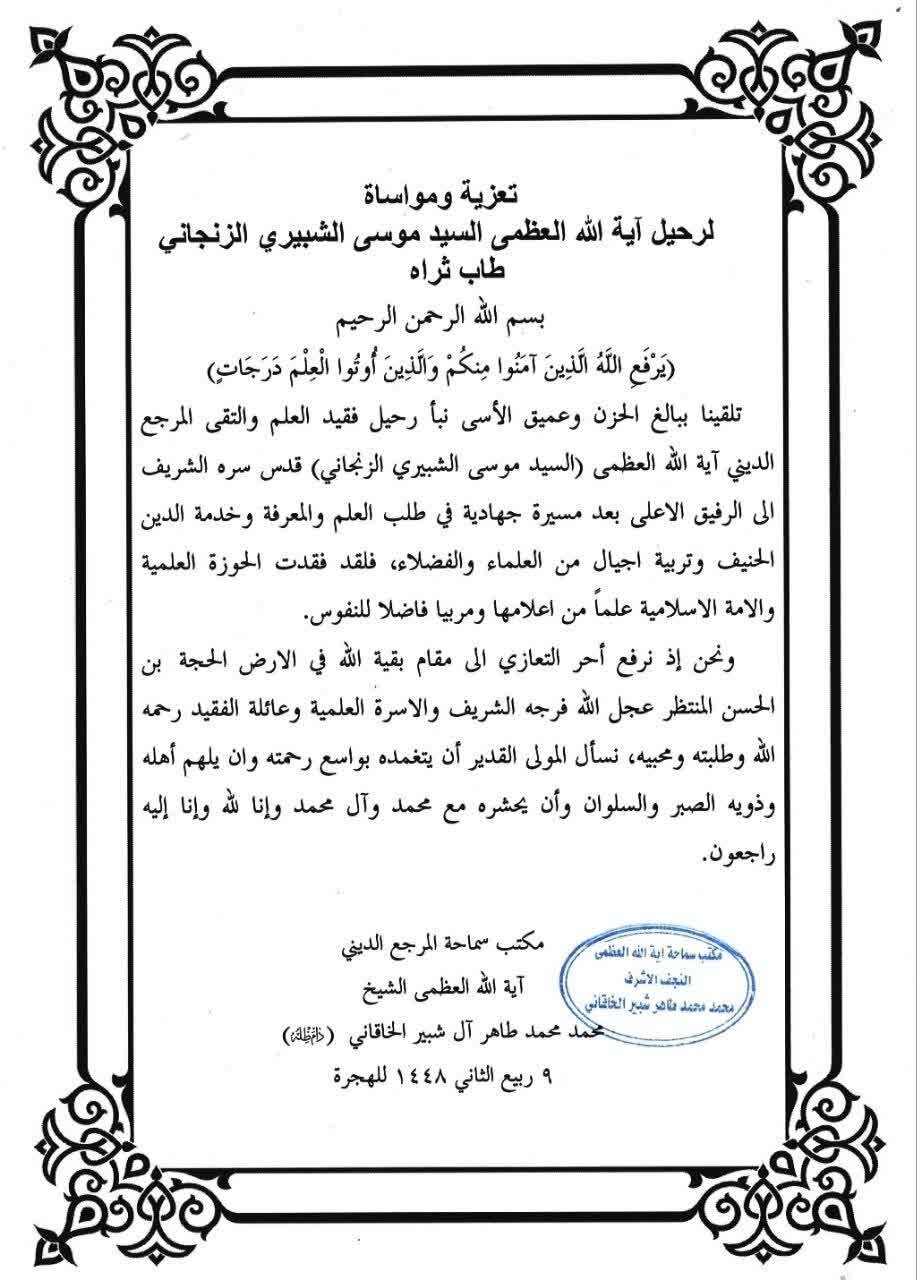 تعزية ومواساة
لرحيل آية الله العظمى السيد موسى الشبيري الزنجاني
طاب ثراه
بسم الله الرحمن الرحيم
(يَرْفَعِ اللَّهُ الَّذِينَ آمَنُوا مِنكُمْ وَالَّذِينَ أُوتُوا الْعِلْمَ دَرَجَاتٍ)
تلقينا ببالغ الحزن وعميق الأسى نبأ رحيل فقيد العلم والتقى المرجع
الديني آية الله العظمى (السيد موسى الشبيري الزنجاني) قدس سره الشريف
الى الرفيق الاعلى بعد مسيرة جهادية في طلب العلم والمعرفة وخدمة الدين
الحنيف وتربية اجيال من العلماء والفضلاء، فلقد فقدت الحوزة العلمية
والامة الاسلامية علماً من اعلامها ومربيا فاضلا للنفوس.
ونحن إذ نرفع أحر التعازي الى مقام بقية الله في الارض الحجة بن
الحسن المنتظر عجل الله فرجه الشريف والاسرة العلمية وعائلة الفقيد رحمه
الله وطلبته ومحبيه، نسأل المولى القدير أن يتغمده بواسع رحمته وان يلهم أهله
وذويه الصبر والسلوان وأن يحشره مع محمد وآل محمد وإنا لله وإنا إليه
راجعون.
مكتب سماحة المرجع الديني
آية الله العظمى الشيخ
محمد محمد طاهر آل شبير الخاقاني (دام ظله)
٩ ربيع الثاني ١٤٤٨ للهجرة
مكتب سماحة اية الله العظمى
النجف الاشرف
محمد محمد طاهر شبير الخاقاني